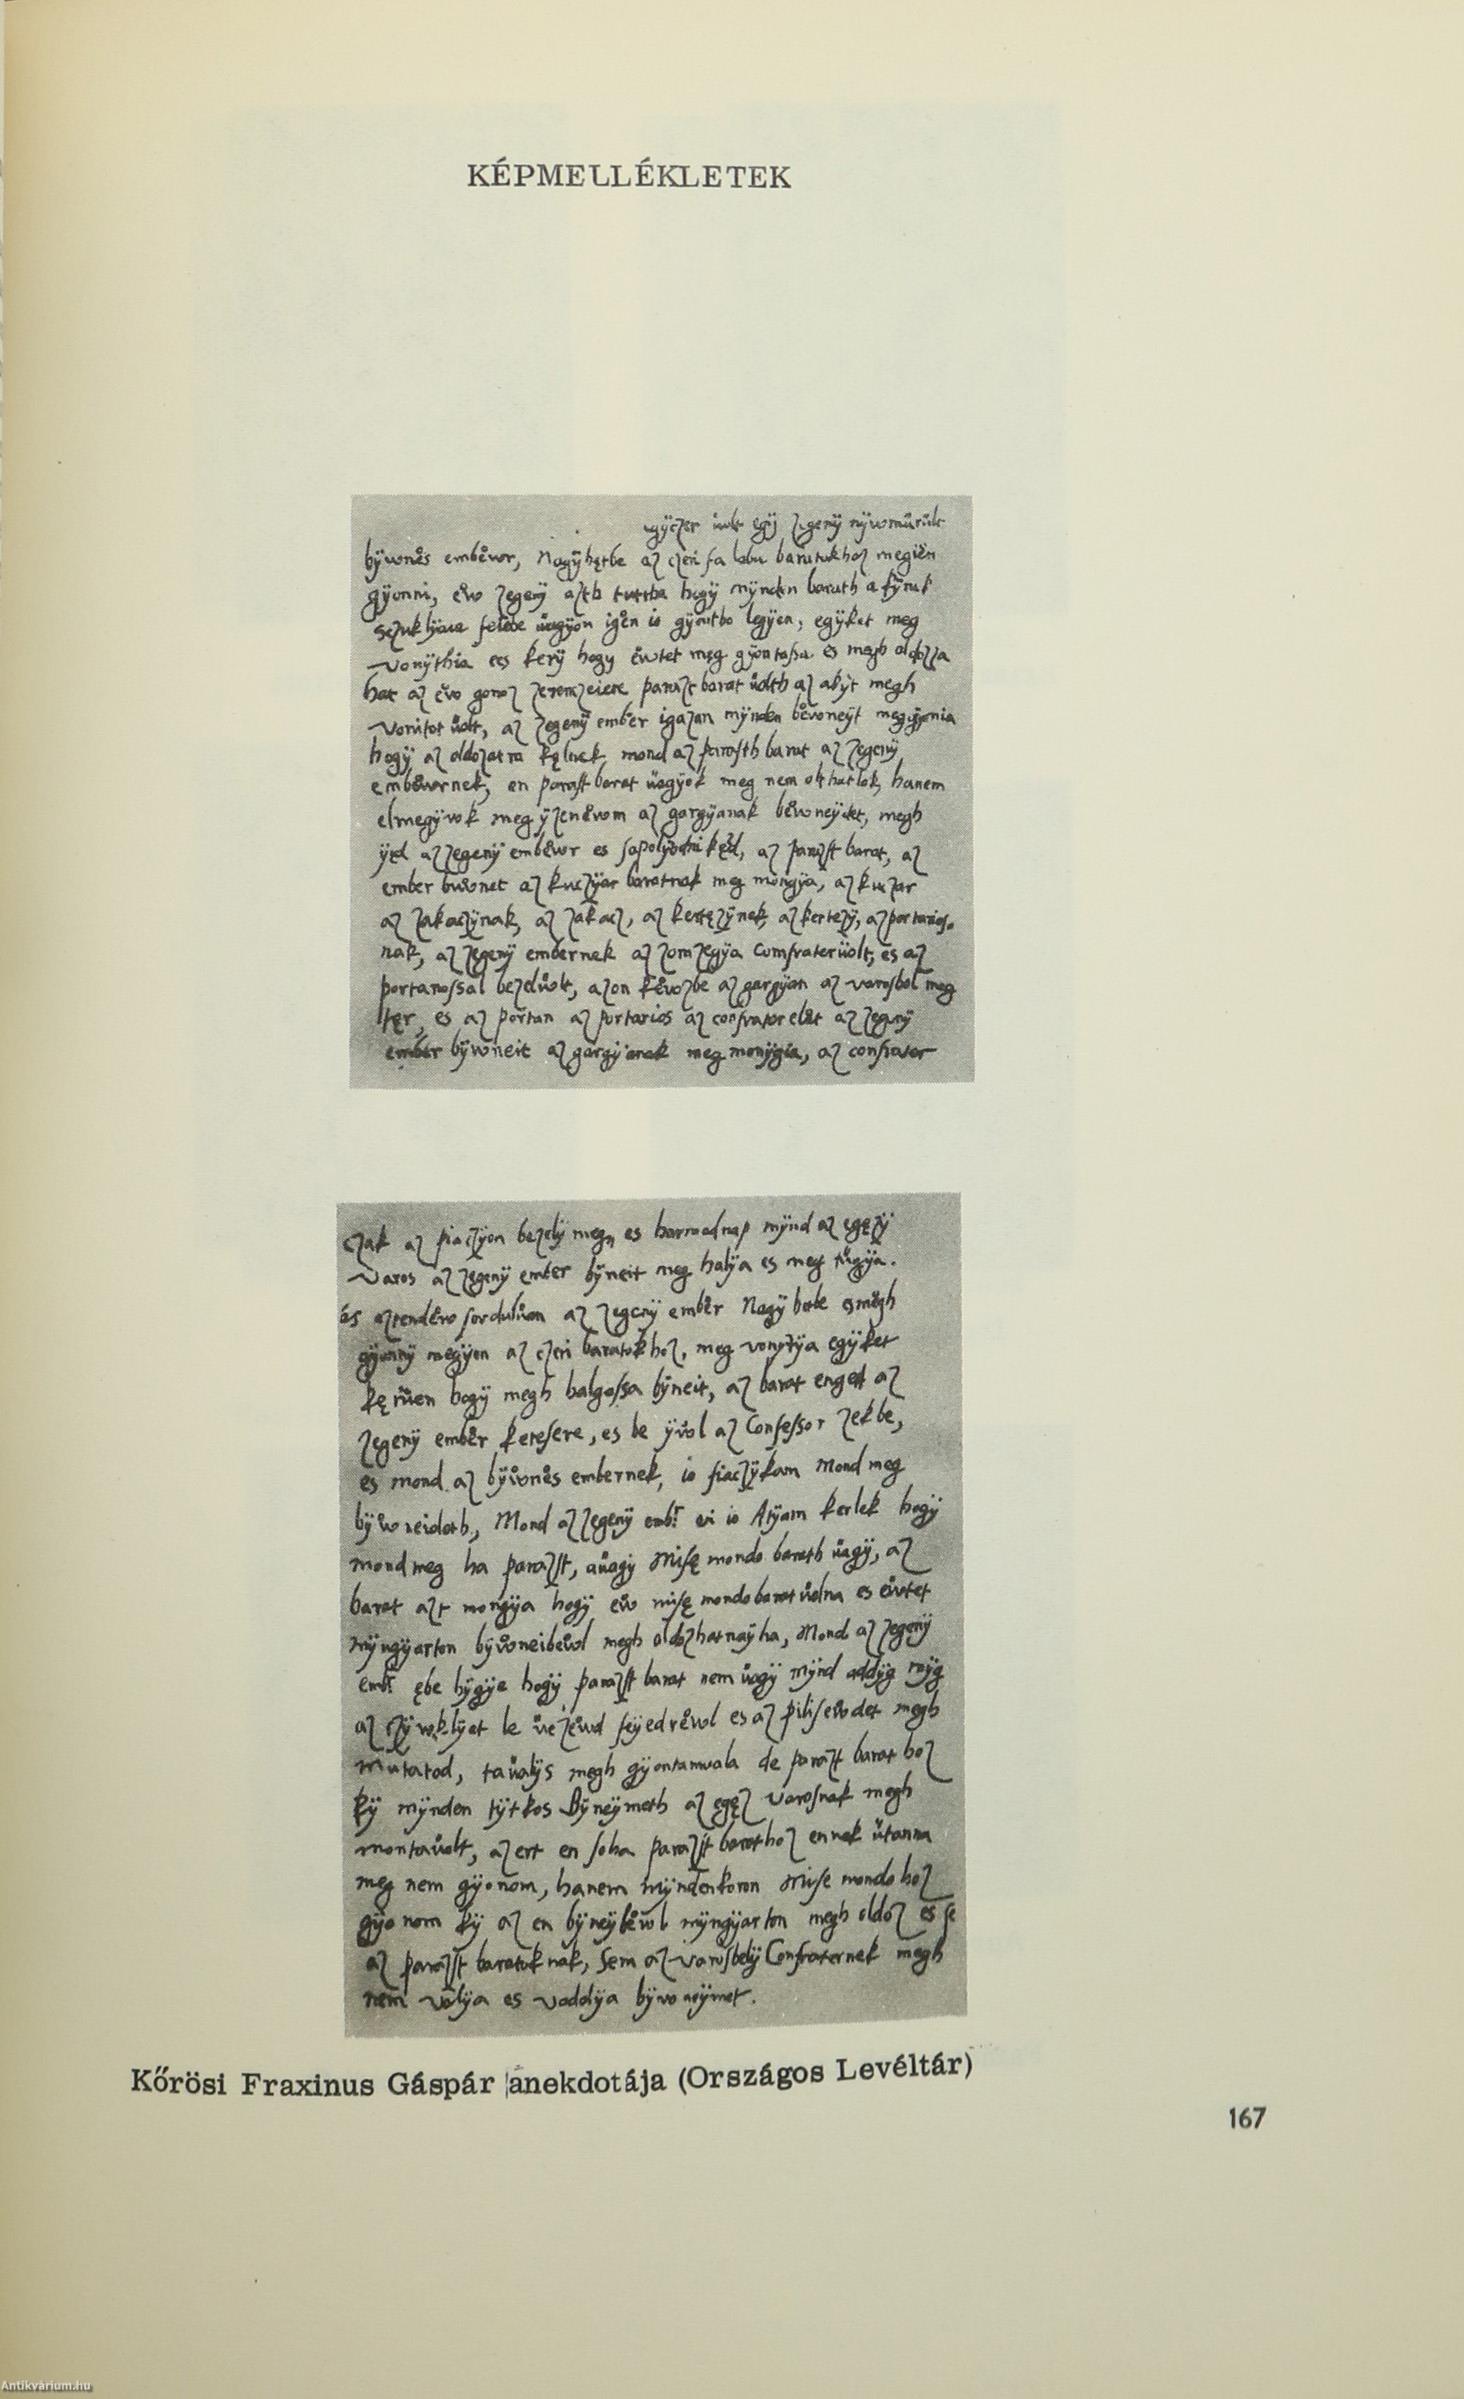 KÉPMELLÉKLETEK
egÿ zegenÿ nÿwmürült
bÿwnes embewr, Nagÿhetbe az czeri fa labu baratokhoz megien
gÿonni, ew zegenÿ azth tuttha hogÿ mÿnden barath a kÿnek
legÿen, egÿket meg
vonÿthia ees kerÿ hogy ewtet meg gÿontassa es megh oldozza
hat az ewo gonoz parazt barat uolth az akÿt megh
vonitot uolt, az zegenÿ ember igazan mÿnden bewneÿt meggÿonia
hogÿ az oldozatra kelnek mond az parasth barat az zegenÿ
embewrnek, en parast barat uagÿok meg nem hanem
elmegÿwok meg ÿzenewom az gargÿanak bewneÿdet, megh
az zegenÿ embewr es az parazst barat, az
ember buwnet az kuczÿar baratnak meg mongÿa, az kuczar
az zakaczÿnak, az zakacz, az kertezÿnek, az kertezÿ, az portarios-
nak, az zegenÿ embernek az zomzegÿa Comfrater üolt, es az
portariossal bezduolt, azon kewozbe az gargÿan az varosbol meg
ter, es az portan az portarios az confrater elut az zegenÿ
ember bÿwneit az gargÿanak meg monÿgia, az confrater
czak az piaczÿon bezelÿ meg, es harmadnap mÿnd az egezÿ
Varos az zegenÿ ember bÿneit meg halÿa es meg tugÿa.
es aztendewo forduluan az zegenÿ ember Nagÿ hetbe esmegh
gÿonnÿ megÿen az czeri baratokhoz, meg vonyzÿa egÿket
kerüen hogÿ megh halgassa bÿneit, az barat enged az
zegenÿ ember keresere, es be ÿwol az Confessor zekbe,
es mond az bÿwnes embernek, io fiaczÿkam Mond meg
bÿwneideth, Mond az zegenÿ io Atÿam kerlek hogÿ
mondmeg ha parazst, auagy Mise mondo barath uagÿ, az
barat azt mongÿa hogÿ ew mise mondo barat uolna es ewtet
mÿngÿarton bÿwneibewl megh oldozhatnaÿha, Mond az zegenÿ
ebe hÿgÿe hogÿ parazst barat nem uagÿ mÿnd addÿg mÿg
az czÿwoklÿat le uezewd feÿedrewl es az pilisewdet megh
Mutatod, taualÿs megh gÿontamuala de parazt barat hoz
kÿ mÿnden tÿtkos Bÿneÿmeth az egez Varosnak megh
montauolt, azert en soha parazst barathoz ennek ütanna
meg nem gÿonom, hanem mÿndenkoron Mise mondo hoz
gÿo nom kÿ az en bÿneÿbewol mÿngÿarton megh oldoz es se
az parazst baratoknak, Sem az varosbelÿ Confraternek megh
nem valÿa es vaddÿa bÿwneÿmet.
Kőrösi Fraxinus Gáspár anekdotája (Országos Levéltár)
167
Antikvárium.hu